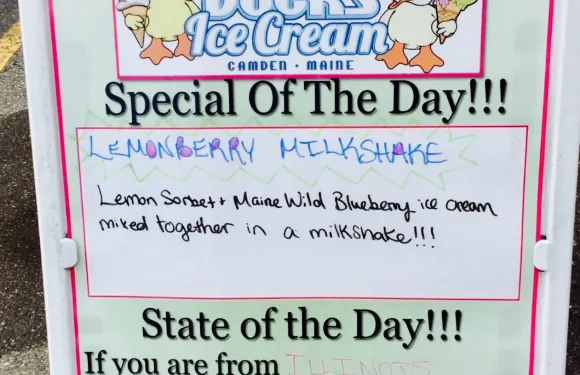 DUCKS
Ice Cream
CAMDEN • MAINE
Special Of The Day!!!
LEMONBERRY MILKSHAKE
Lemon Sorbet + Maine Wild Blueberry ice cream
mixed together in a milkshake!!!
State of the Day!!!
If you are from ILLINOIS